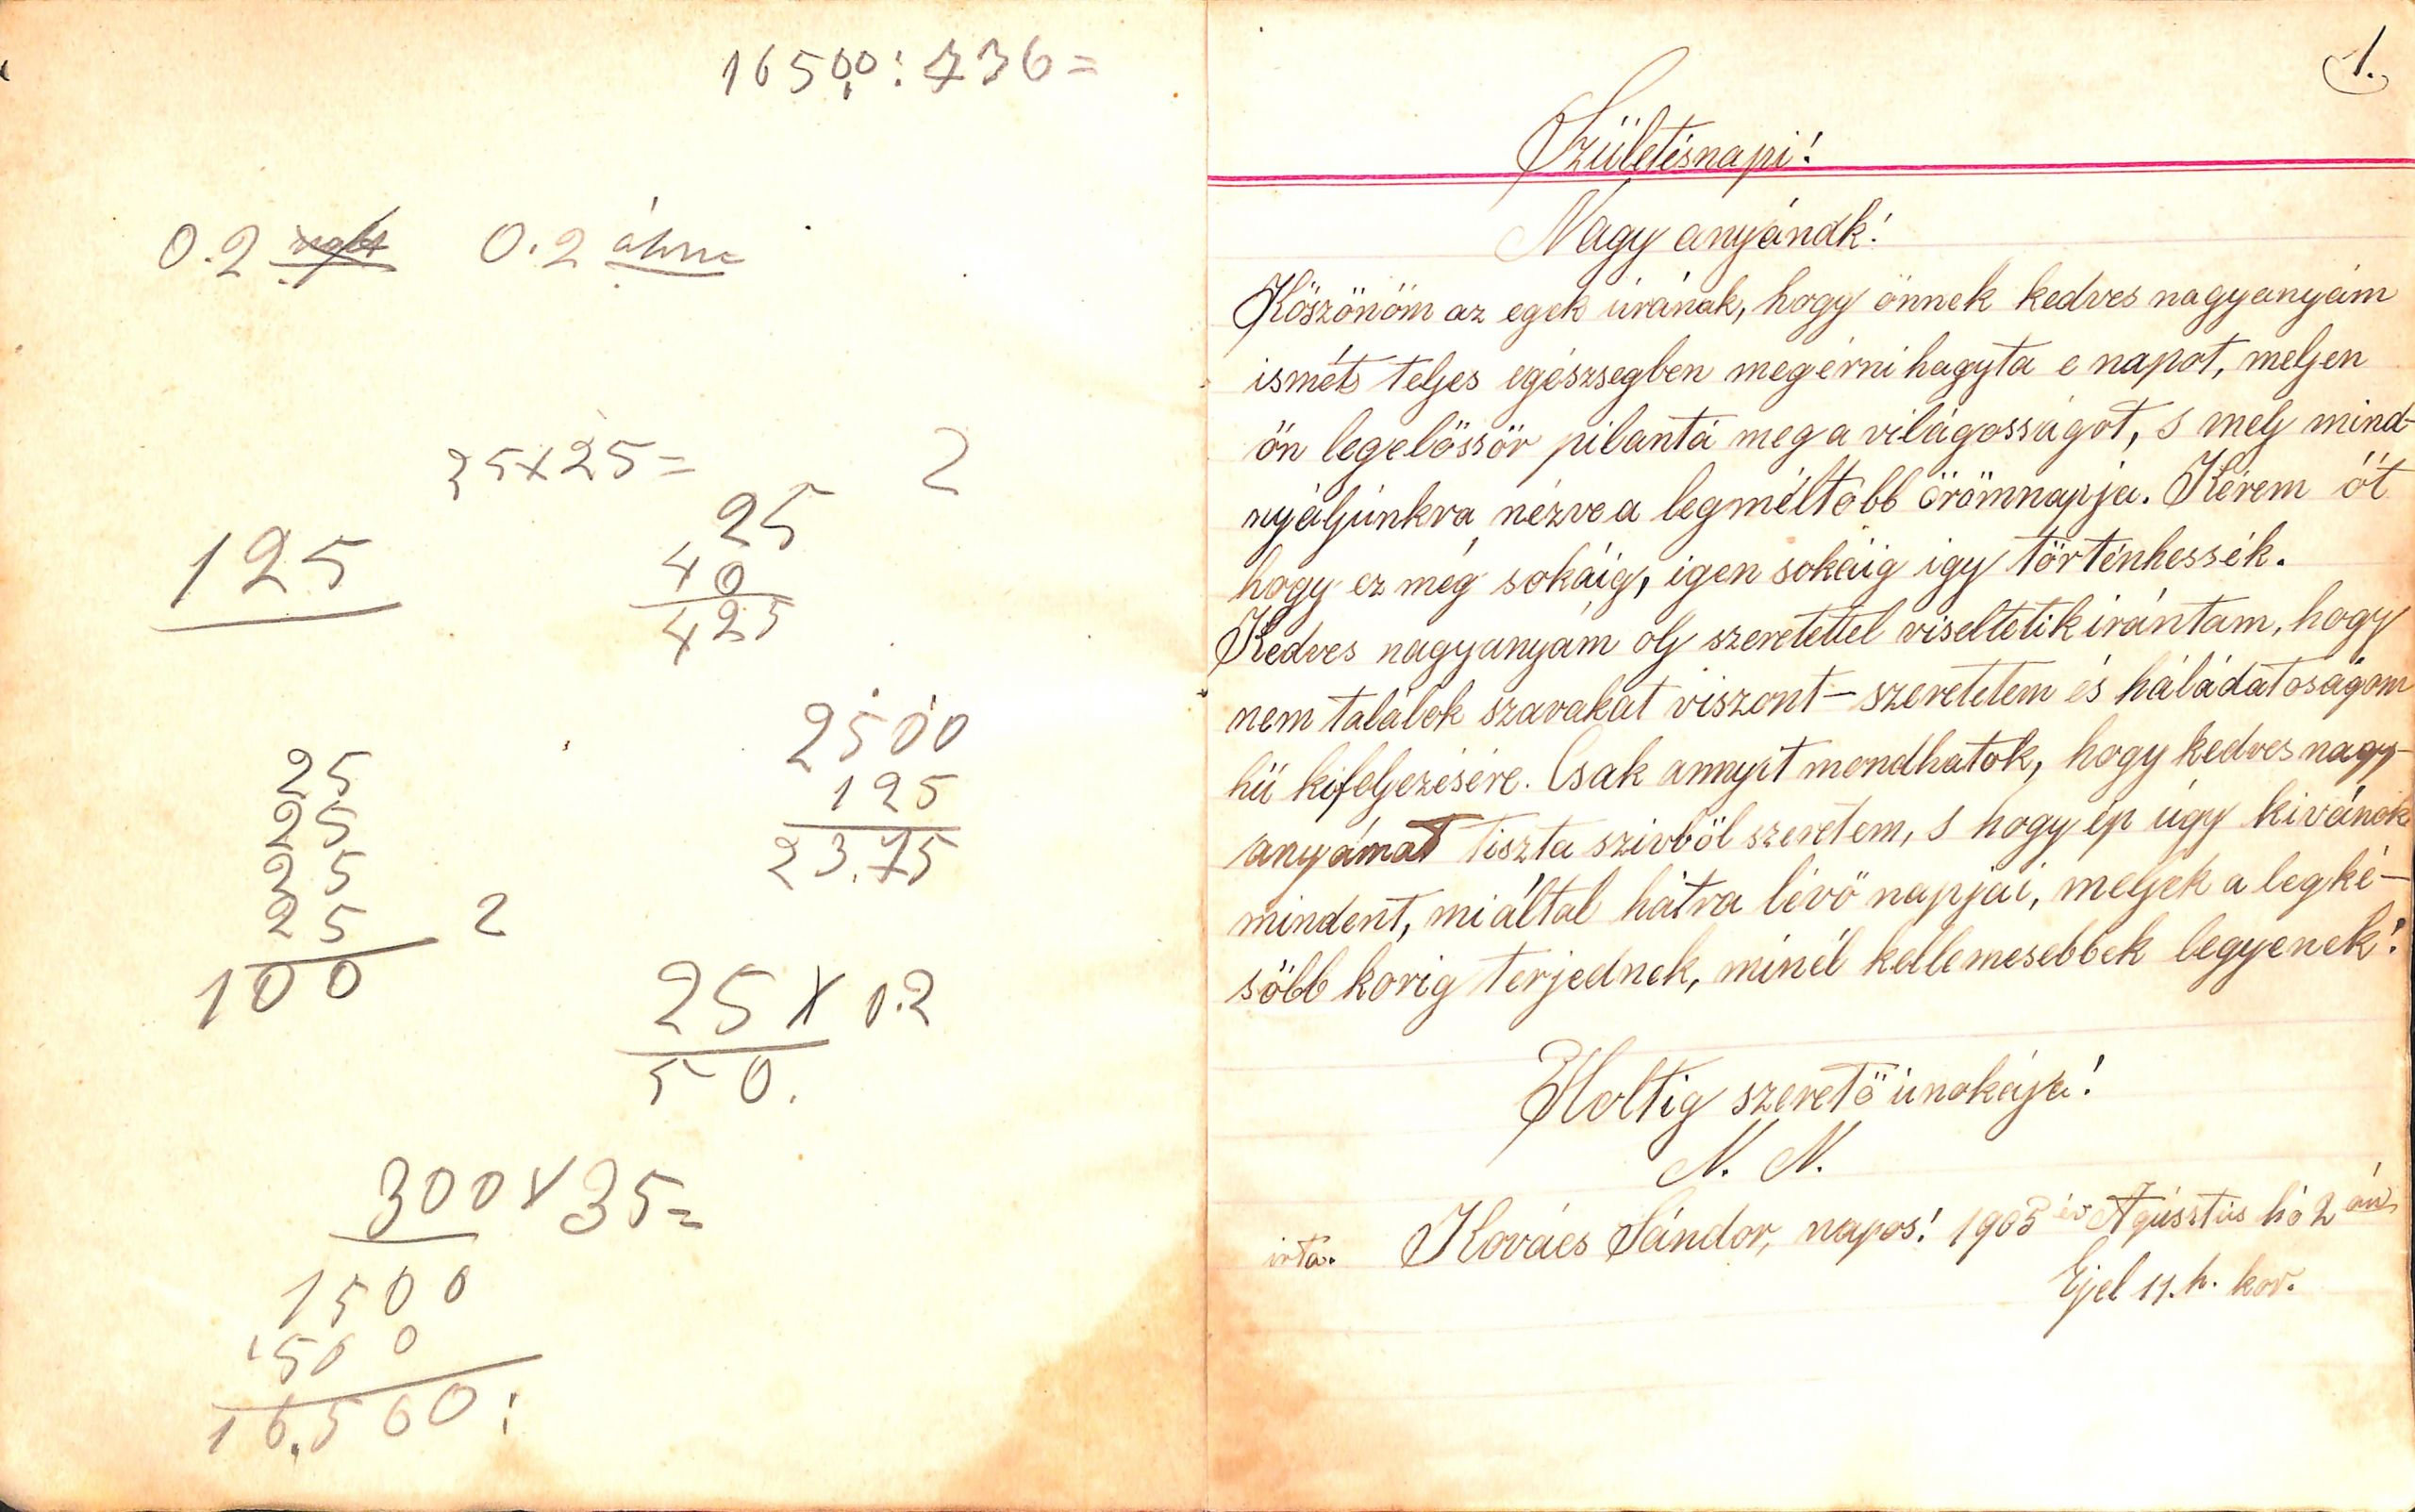 16500 : 736 =
0.2 0.2 ohm
25x25=
2
25
40
425
125
2500
125
23.75
25
25
25
25
2
100
25 x 0.2
50.
300 x 35=
1500
1500
16.500 :
1.
Születésnapi!
Nagy anyánák!
Köszönöm az egek úrának, hogy önnek kedves nagyanyám
ismét teljes egészsegben megérni hagyta e napot, meljen
ön legelössör pilantá meg a világosságot, s mely mind-
nyáljúnkra nézve a legméltóbb örömnapja. Kérem őt
hogy ez még sokáig, igen sokáig igy történhessék.
Kedves nagyanyám oly szeretettel viseltetik irántam, hogy
nem találok szavakat viszont- szeretetem és háládatoságom
hü kifeljezésére. Csak annyit mondhatok, hogy kedves nagy-
anyámat tiszta szivböl szeretem, s hogy ép úgy kivánok
mindent, mi által hátra lévö napjai, meljek a legké-
söbb korig terjednek, minél kellemesebbek legyenek!
Holtig szeretö únokája!
N. N.
irta. Kovács Sándor, napos! 1905 év Agúsztús hó 2 án
Ejel 11. h. kor.